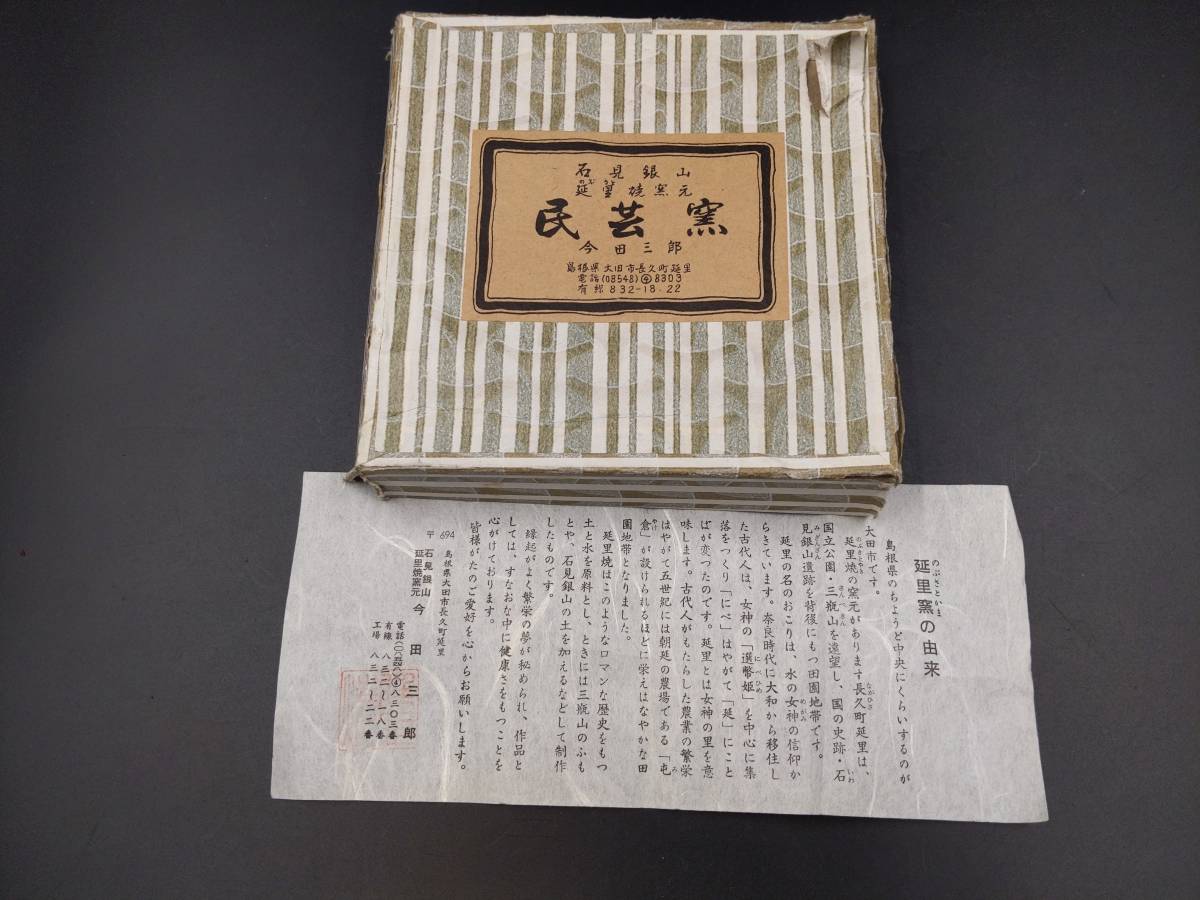 石見銀山
延里焼窯元
民芸窯
今田三郎
島根県大田市長久町延里
電話(08548)④8303
有線 832-18.22
延里窯の由来
のぶさとかま
島根県のちようど中央にくらいするのが
大田市です。
延里焼の窯元があります長久町延里は、
のぶさとやき
ながひさ
国立公園・三瓶山を遠望し、国の史跡・石
さんべさん
いわ
見銀山遺跡を背後にもつ田園地帯です。
みぎんざん
延里の名のおこりは、水の女神の信仰か
めがみ
らきています。奈良時代に大和から移住し
た古代人は、女神の「選幣姫」を中心に集
にべひめ
落をつくり「にべ」はやがて「延」にこと
ばが変つたのです。延里とは女神の里を意
味します。古代人がもたらした農業の繁栄
はやがて五世紀には朝廷の農場である「屯
み
倉」が設けられるほどに栄えはなやかな田
やけ
園地帯となりました。
延里焼はこのようなロマンな歴史をもつ
土と水を原料とし、ときには三瓶山のふも
とや、石見銀山の土を加えるなどして制作
したものです。
縁起がよく繁栄の夢が秘められ、作品と
しては、すなおな中に健康さをもつことを
心がけております。
皆様がたのご愛好を心からお願いします。
〒694 島根県大田市長久町延里
石見銀山
延里焼窯元 今田三郎
電話(〇八五四八)④八三〇三番
有線 八三二―一八番
工場 八三二―二二番